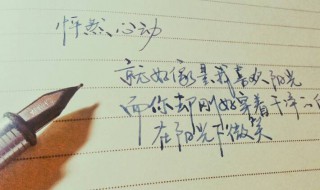 怦然心动
就好像是我喜欢阳光
而你却刚好穿着干净的白
在阳光下微笑